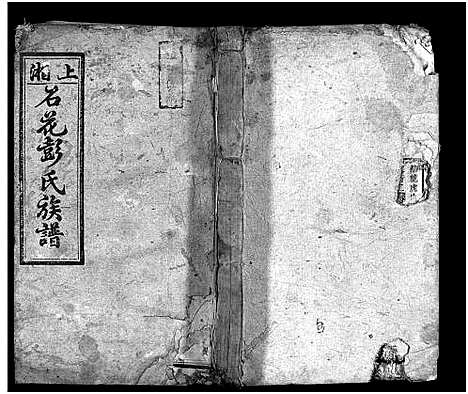 上湘
名花彭氏族譜